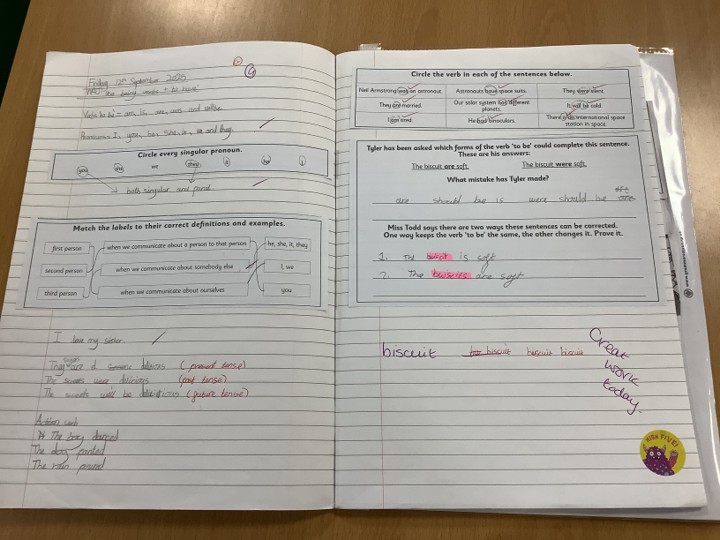 Friday 12th September 2025
Verb 'to be' - am, is, are, was and were.
Pronouns: I, you, he, she, it, we and they.
Circle every singular pronoun.
you she we they it he I
both singular and
Match the labels to their correct definitions and examples.
first person when we communicate about a person to that person he, she, it, they
second person when we communicate about somebody else I, we
third person when we communicate about ourselves you
I love my sister.
(present tense)
The sweets were (past tense)
The sweets will be (future tense)
Action verb
The boy danced
The dog panted
The rain poured
Circle the verb in each of the sentences below.
Neil Armstrong was an astronaut. Astronauts have space suits. They were silent.
They are married. Our solar system has different planets. It will be cold.
I am tired. He had binoculars. There is an international space station in space.
Tyler has been asked which forms of the verb 'to be' could complete this sentence.
These are his answers:
The biscuit are soft. The biscuit were soft.
What mistake has Tyler made?
are should be is were should be are
Miss Todd says there are two ways these sentences can be corrected.
One way keeps the verb 'to be' the same, the other changes it. Prove it.
1. The biscit is soft
2. The are soft
biscuit biscuit biscuit biscuit
Great
work
today.
HIGH FIVE!